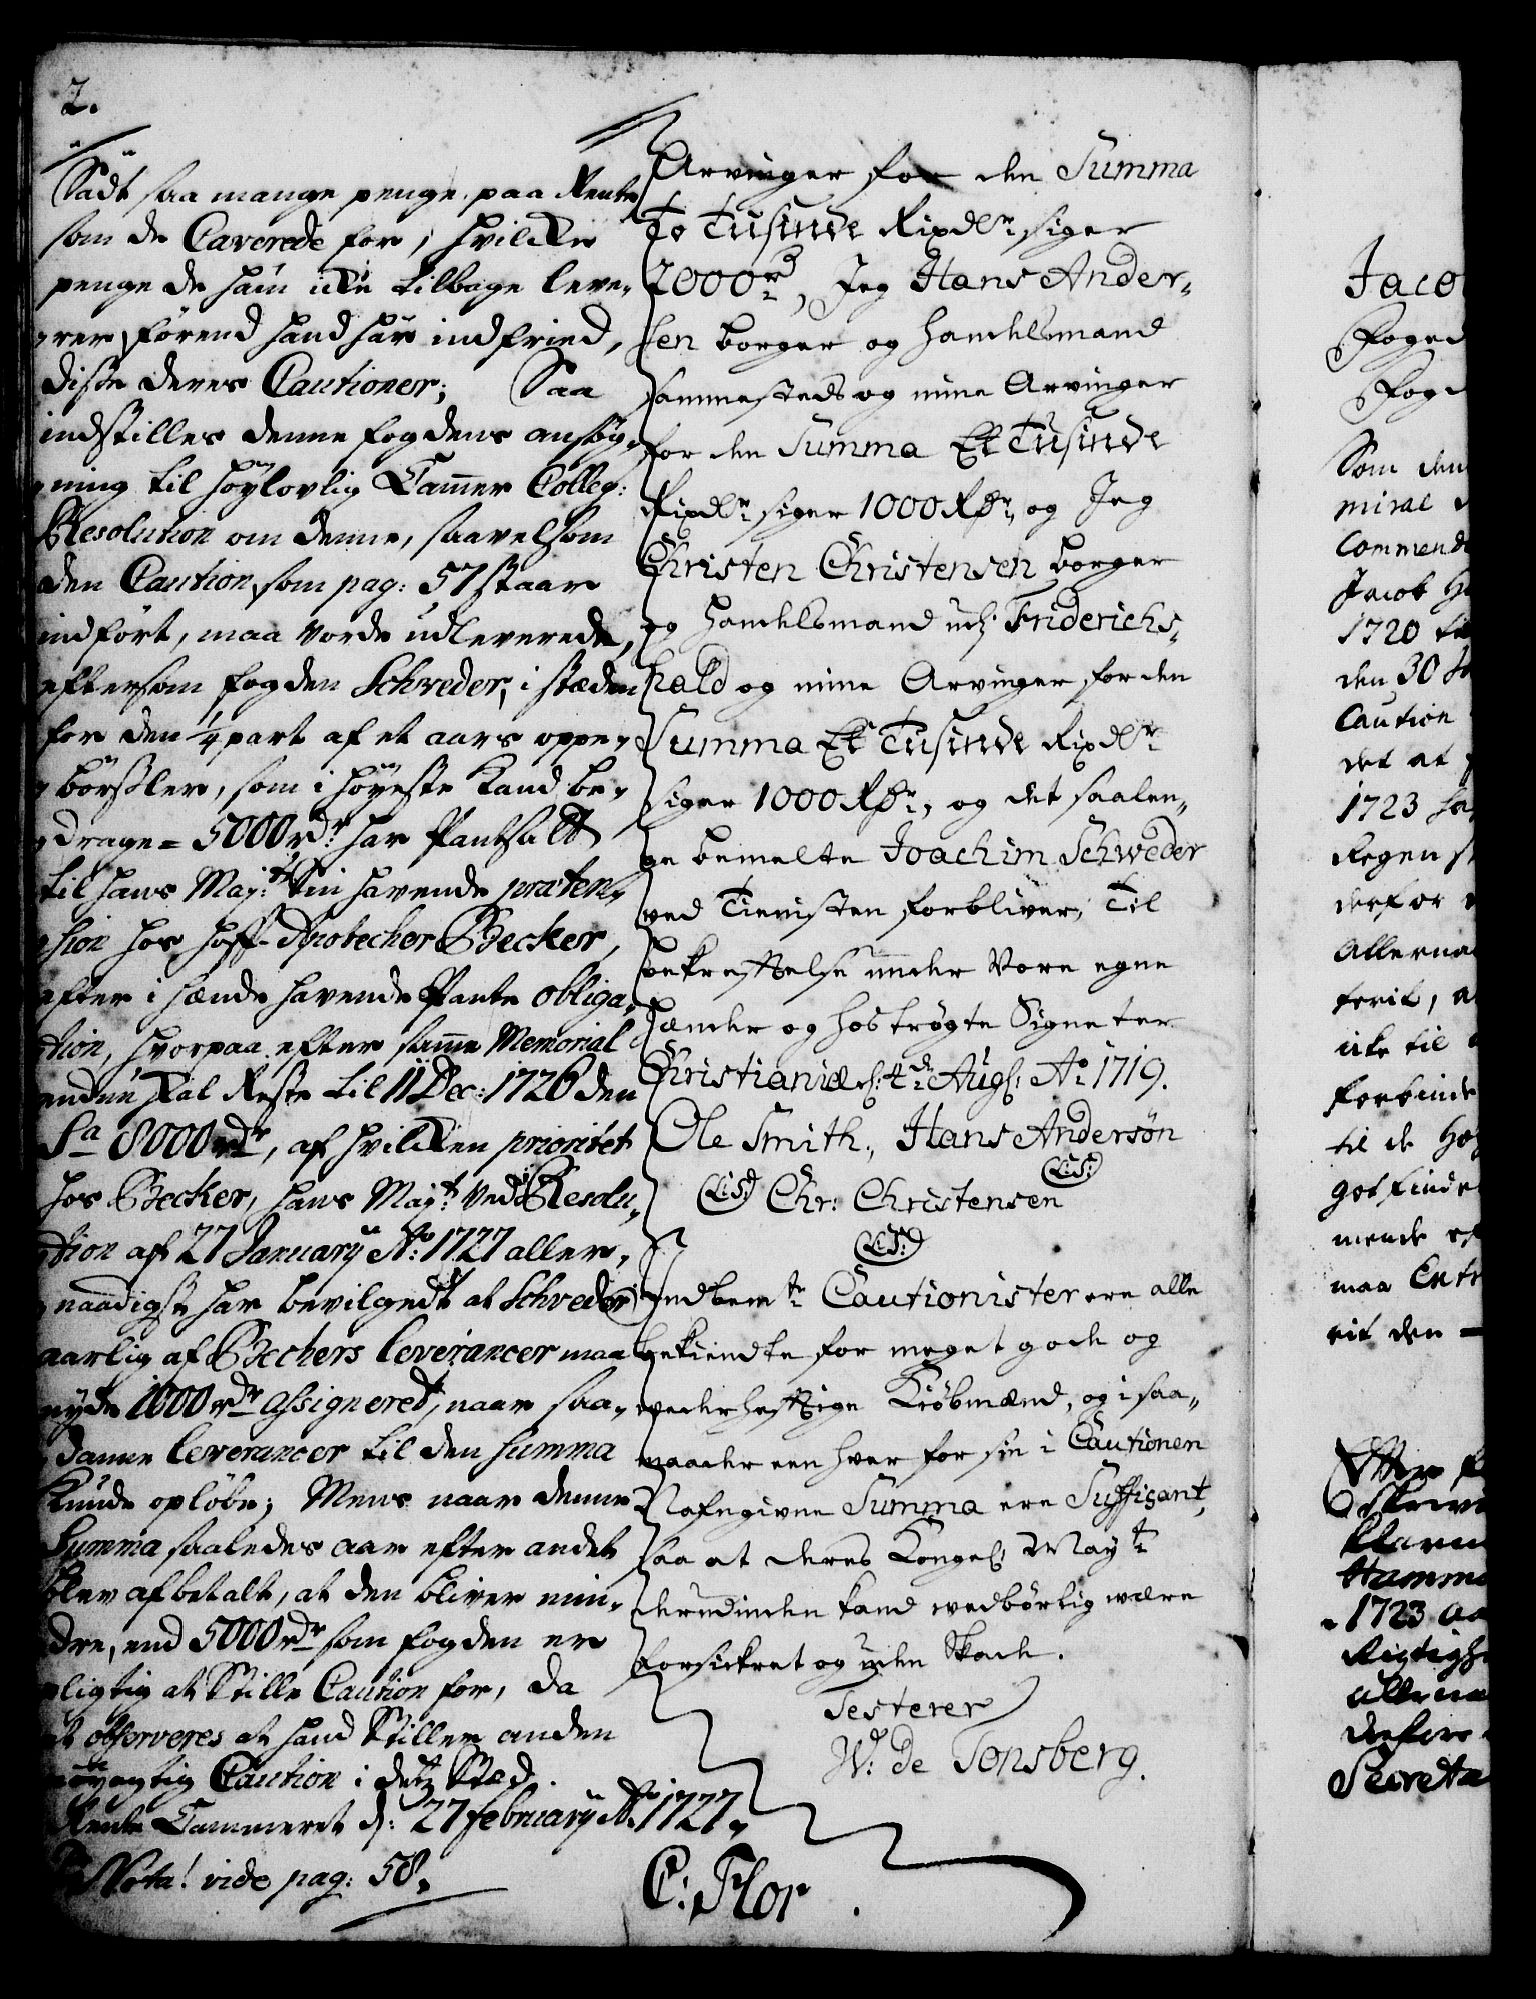 2.
Sadt saa mange penge paa Rente
som de Caverede for, hvilcke
penge de ham icke tilbage leve,
,rer, førend hand har indfried,
diste deres Cautioner; Saa
indstilles denne fogdens ansøg,
,ning til høylovlig Cammer Colleg:
Resolution om denne, saavelsom
den Caution, som pag: 57 staar
indført, maa vorde udleverede,
eftersom fogden Schreder, i stæden
for den 1/4 part af et aars oppe,
,børsler, som i høyeste kand be,
,drage = 5000 rdr: har Pantsatt
til hans Maj:t sin havende præten,
,sion hos hoff-Apotecher Becker,
efter i hænde havende Pante obliga,
,tion, hvorpaa efter samme Memorial
endnu skal Reste til 11 Dec: 1726 den
Sa 8000 rdr, af hvilcken prioritet
hos Becker, hans Mayt: ved Resolu,
,tion af 27 January Ao: 1727 aller,
,naadigst har bevilgedt at Schreder
aarlig af Bechers leverancer maa
nyde 1000 rdr assigneret, naar saa,
,danne leverancer til den summa
kunde opløbe; Mens naar denne
Summa saaledes aar efter andet
blev afbetalt, at den bliver min,
dre, end 5000 rdr som fogden er
pligtig at Stille Caution for, da
at observeres at hand Stiller anden
Caution i dets Stæd.
Rente Cammeret d: 27 february Ao 1727,
Nota! vide pag: 58,
Arvinger for den Summa
To Tusinde Rixdlr: siger
2000 rd, Jeg Hans Ander,
sen borger og handelsmand
sammesteds og mine Arvinger
for den Summa Et Tusinde
Rixdlr: siger 1000 Rdr, og Jeg
Christen Christensen borger
og handelsmand udj Friderichs,
hald og mine Arvinger for den
Summa Et Tusinde Rixdlr
siger 1000 Rdr, og det saalen,
ge bemelte Joachim Schweder
ved Tienisten forbliver, Til
bekreftelse under Vore egne
hænder og hostrøgte Signeter
Christianiæ d: 4de Aug: Ao 1719.
Ole Smith, Hans Andersøn
(L:S:) Chr: Christensen (L:S:)
(L:S:)
Indbemte Cautionister ere alle
bekiendte for meget gode og
vederheftige Kiøbmænd, og i saa,
maader een hver for sin i Cautionen
Nafngivne Summa ere Suffisant,
saa at deres Kongel: Mayt:
derudinden kand vedbørlig være
forsickret og uden Skade.
Testerer
W: de Tonsberg.
C: Flor.
Jaco
Foged
Foge
Som den
miral
Commende
Jacob H
1720 til
den 30
Caution
det at
1723
Regens
derfor
Allerna
ferit, a
icke til
forbinde
til de
got finde
mende
maa Entr
rit den =
Hamme
1723
Rigtigh
allerna
Secreta